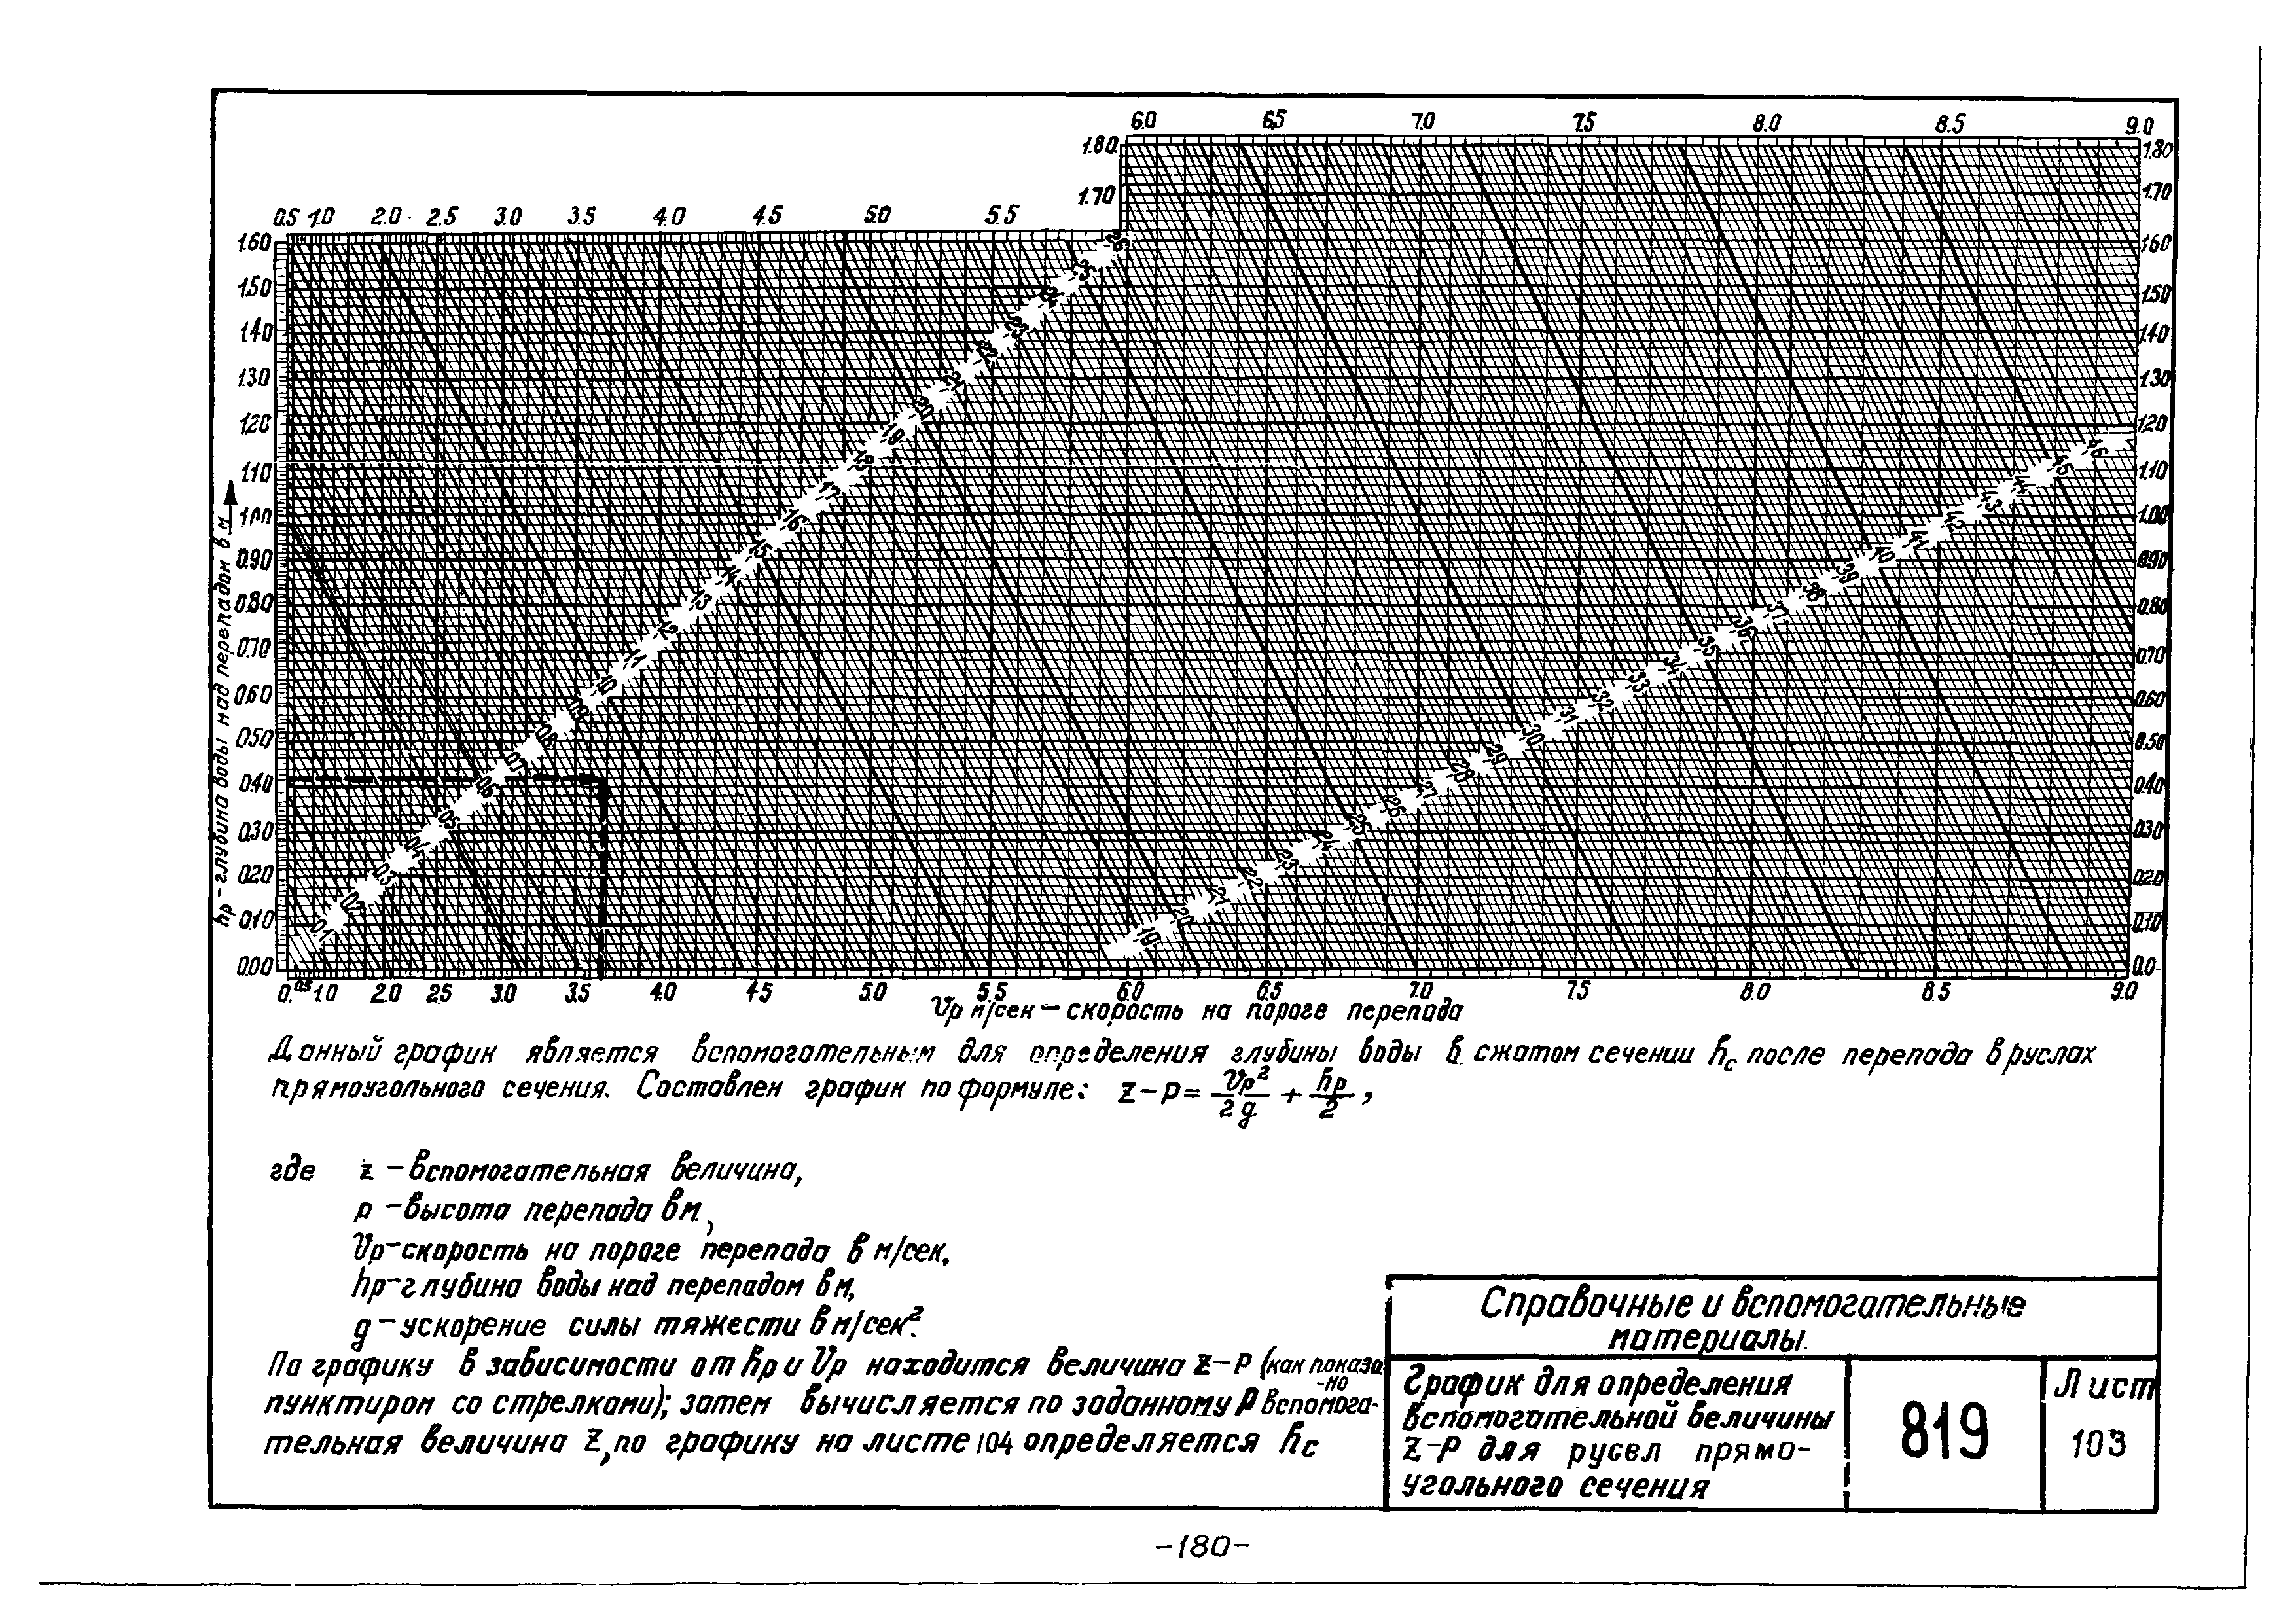 6.0 6.5 7.0 7.5 8.0 8.5 9.0
1.80 1.80
1.70 1.70
0.5 1.0 2.0 2.5 3.0 3.5 4.0 4.5 5.0 5.5
1.60 1.60
1.50 1.50
1.40 1.40
1.30 1.30
1.20 1.20
1.10 1.10
1.00 1.00
0.90 0.90
0.80 0.80
0.70 0.70
0.60 0.60
0.50 0.50
0.40 0.40
0.30 0.30
0.20 0.20
0.10 0.10
0.00 0.0
hр - глубина воды над перепадом в м
0.1 0.2 0.3 0.4 0.5 0.6 0.7 0.8 0.9 1.0 1.1 1.2 1.3 1.4 1.5 1.6 1.7 1.8 1.9 2.0 2.1 2.2 2.3 2.4 2.5 2.6
1.9 2.0 2.1 2.2 2.3 2.4 2.5 2.6 2.7 2.8 2.9 3.0 3.1 3.2 3.3 3.4 3.5 3.6 3.7 3.8 3.9 4.0 4.1 4.2 4.3 4.4 4.5 4.6
0. 0.5 1.0 2.0 2.5 3.0 3.5 4.0 4.5 5.0 5.5 6.0 6.5 7.0 7.5 8.0 8.5 9.0
Vр м/сек - скорость на пороге перепада
Данный график является вспомогательным для определения глубины воды в сжатом сечении hс после перепада в руслах
прямоугольного сечения. Составлен график по формуле: z-p = Vр²/2g + hр/2,
где z - вспомогательная величина,
р - высота перепада в м,
Vр - скорость на пороге перепада в м/сек,
hр - глубина воды над перепадом в м,
g - ускорение силы тяжести в м/сек².
По графику в зависимости от hр и Vр находится величина z-р (как показа-но
пунктиром со стрелками); затем вычисляется по заданному р вспомога-
тельная величина z, по графику на листе 104 определяется hс
Справочные и вспомогательные
материалы.
График для определения
вспомогательной величины
z-р для русел прямо-
угольного сечения
819
Лист
103
-180-